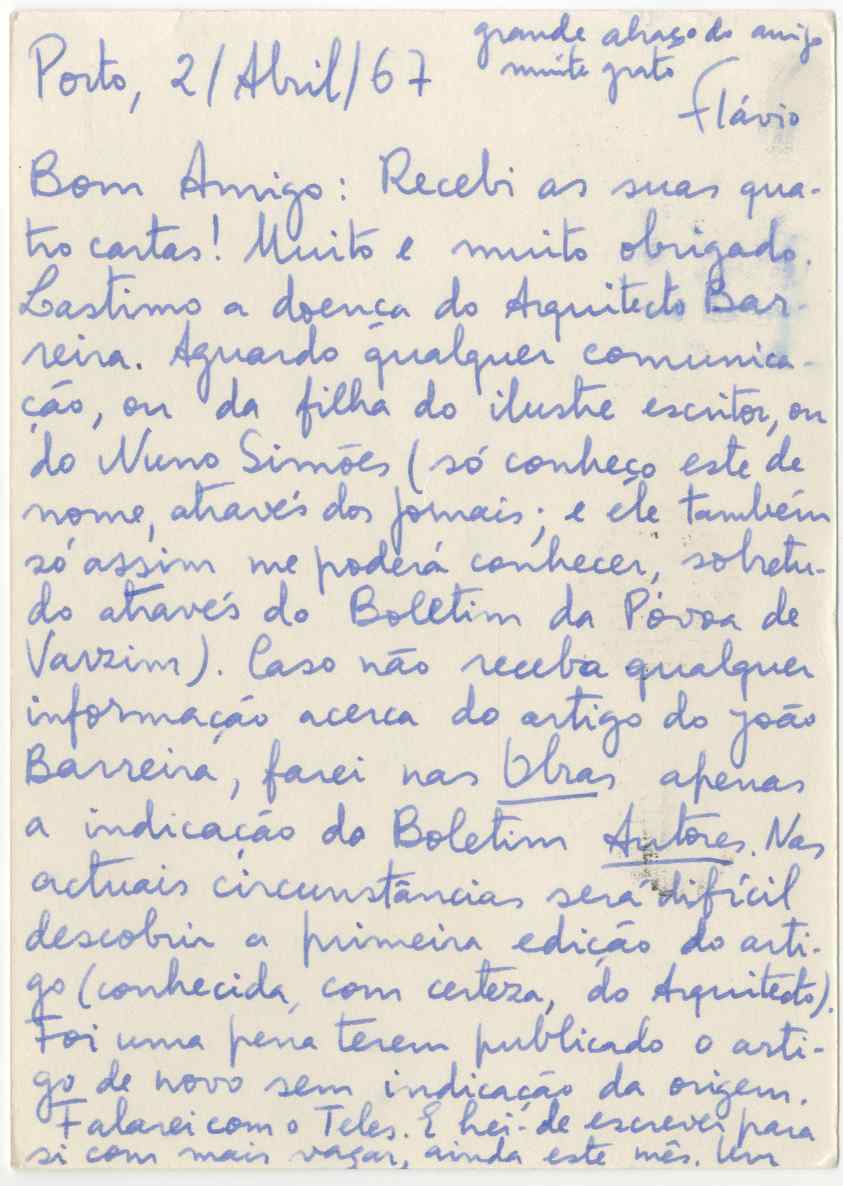 Porto, 2/Abril/67
Bom Amigo: Recebi as suas qua-
tro cartas! Muito e muito obrigado.
Lastimo a doença do Arquitecto Bar-
reira. Aguardo qualquer comunica-
ção, ou da filha do ilustre escritor, ou
do Nuno Simões (só conheço este de
nome, através dos jornais; e êle também
só assim me poderá conhecer, sobretu-
do através do Boletim da Póvoa de
Varzim). Caso não receba qualquer
informação acerca do artigo do João
Barreira, farei nas Obras apenas
a indicação do Boletim Autores. Nas
actuais circunstâncias será difícil
descobrir a primeira edição do arti-
go (conhecida, com certeza, do Arquitecto).
Foi uma pena terem publicado o arti-
go de novo sem indicação da origem.
Falarei com o Teles. E hei-de escrever para
si com mais vagar, ainda este mês. Um
grande abraço do amigo
muito grato
Flávio